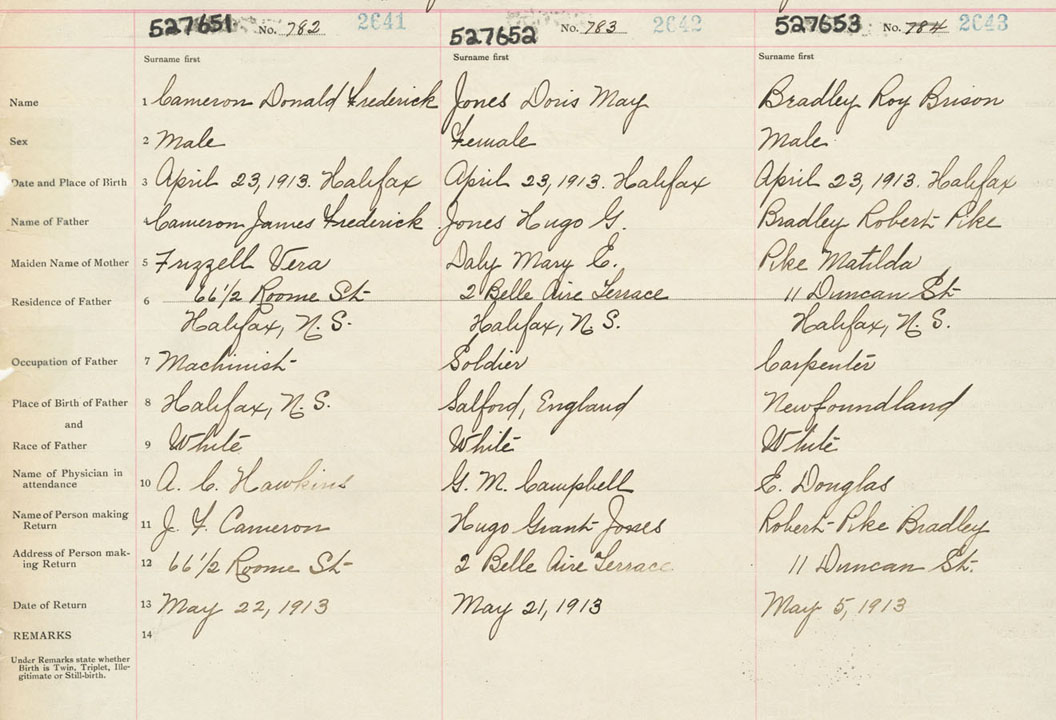 527651 No. 782 2641 527652 No. 783 2642 527653 No. 784 2643
Surname first Surname first Surname first
Name 1 Cameron Donald Frederick Jones Doris May Bradley Roy Brison
Sex 2 Male Female Male
Date and Place of Birth 3 April 23, 1913. Halifax April 23, 1913. Halifax April 23, 1913. Halifax
Name of Father 4 Cameron James Frederick Jones Hugo G. Bradley Robert Pike
Maiden Name of Mother 5 Frizzell Vera Daly Mary E. Pike Matilda
Residence of Father 6 66 1/2 Roome St 2 Belle Aire Terrace 11 Duncan St
Halifax, N.S. Halifax, N.S. Halifax, N.S.
Occupation of Father 7 Machinist Soldier Carpenter
Place of Birth of Father 8 Halifax, N.S. Salford, England Newfoundland
and
Race of Father 9 White White White
Name of Physician in
attendance 10 A. C. Hawkins G. M. Campbell E. Douglas
Name of Person making
Return 11 J. F. Cameron Hugo Grant Jones Robert Pike Bradley
Address of Person mak-
ing Return 12 66 1/2 Roome St 2 Belle Aire Terrace 11 Duncan St.
Date of Return 13 May 22, 1913 May 21, 1913 May 5, 1913
REMARKS 14
Under Remarks state whether
Birth is Twin, Triplet, Ille-
gitimate or Still-birth.